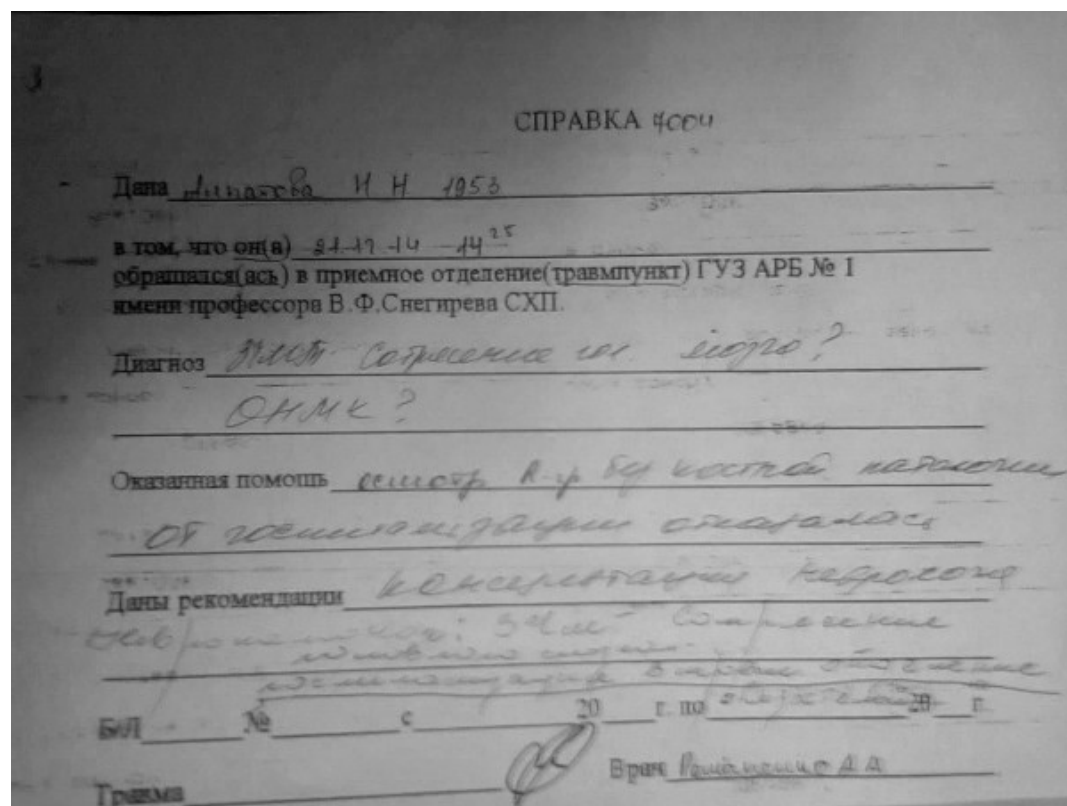 3
СПРАВКА 4004
Дана Липатова Н Н 1953
в том, что он(а) 21.12.14 - 14 25
обращался(ась) в приемное отделение(травмпункт) ГУЗ АРБ № 1
имени профессора В.Ф.Снегирева СХП.
Диагноз Сотрясение гол. мозга?
ОНМК?
Оказанная помощь осмотр R-гр без костной патологии
от госпитализации отказалась
Даны рекомендации консультация невролога
ЗЧМТ Сотрясение
головного мозга.
госпитализация
Б/Л № с 20 г. по 20 г.
Травма Врач Романенко А А